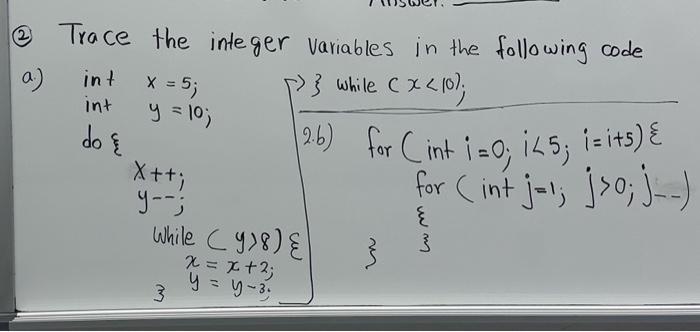 Answer:
② Trace the integer variables in the following code
a.) int x = 5;
int y = 10;
do {
x++;
y--;
While (y>8) {
x = x+2;
y = y-3;
}
→ } while (x<10);
2.b) for (int i=0; i<5; i=i+5) {
for (int j=1; j>0; j--)
{
}
}